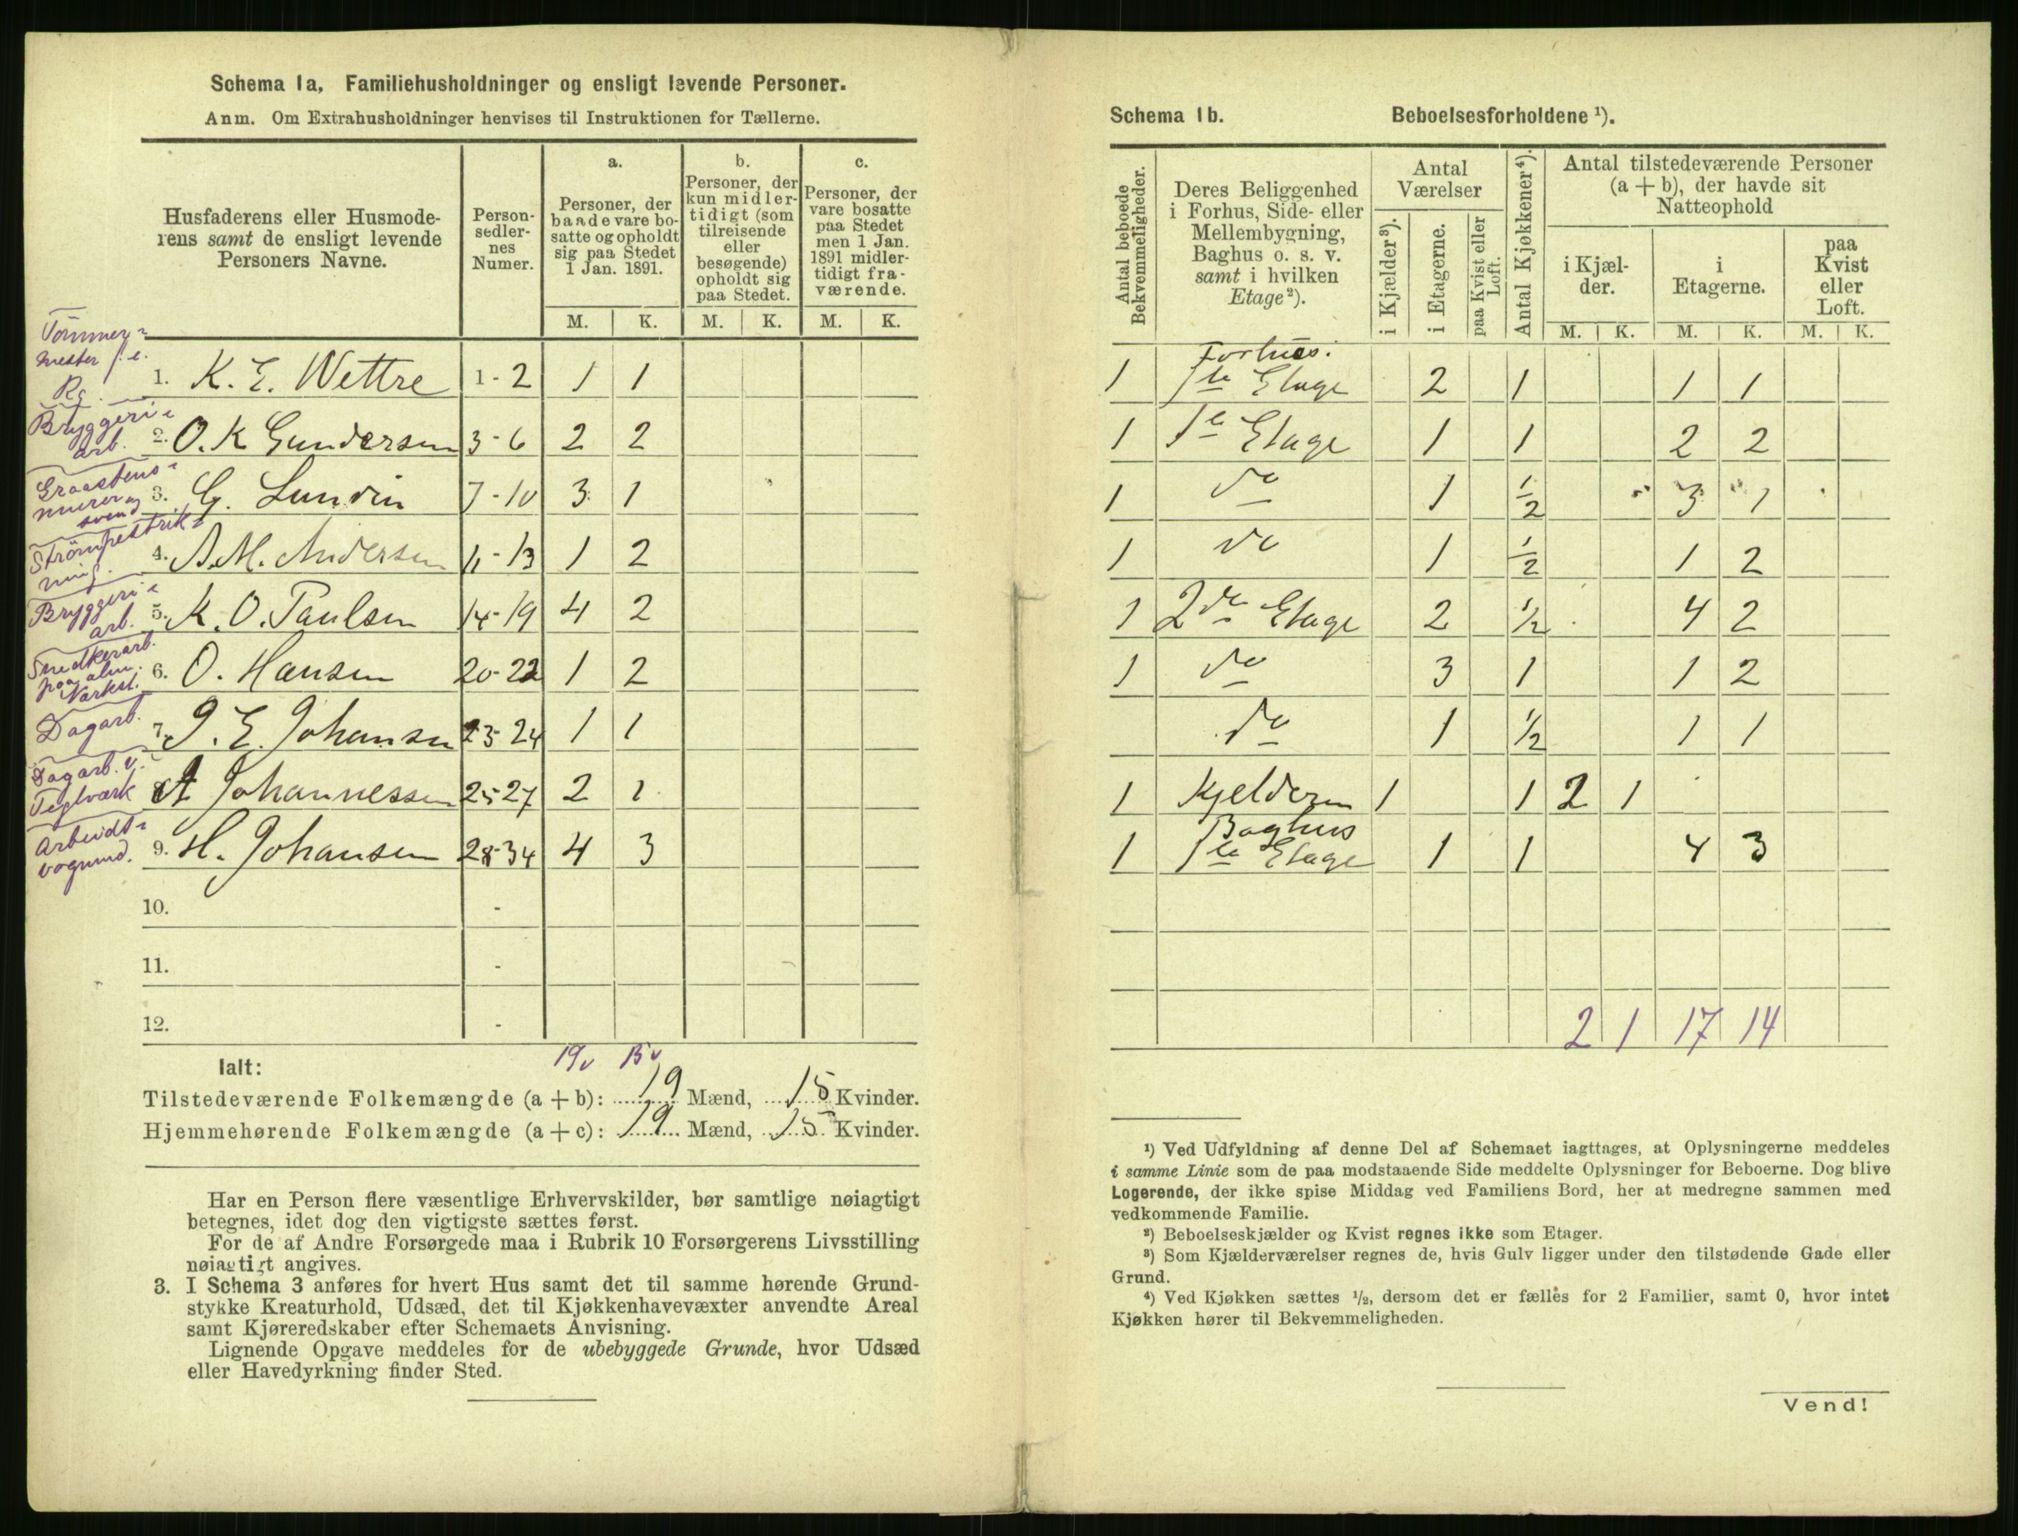 Schema 1a, Familiehusholdninger og ensligt levende Personer.
Anm. Om Extrahusholdninger henvises til Instruktionen for Tællerne.
Husfaderens eller Husmode-
rens samt de ensligt levende
Personers Navne.
Person-
sedler-
nes
Numer.
a.
Personer, der
baade vare bo-
satte og opholdt
sig paa Stedet
1 Jan. 1891.
b.
Personer, der
kun midler-
tidigt (som
tilreisende
eller
besøgende)
opholdt sig
paa Stedet.
c.
Personer, der
vare bosatte
paa Stedet
men 1 Jan.
1891 midler-
tidigt fra-
værende.
M. K. M. K. M. K.
Tömmer-
mester f. e.
Rg.
1. K. E. Wettre 1-2 1 1
Bryggeri-
arb.
2. O. K Gundersen 3-6 2 2
Graastens-
murer
svend
3. G. Lundin 7-10 3 1
Strömpestrik-
ning.
4. A. M. Andersen 11-13 1 2
Bryggeri-
arb.
5. K. O. Paulsen 14-19 4 2
Snedkerarb.
paa alm.
Værkst.
6. O. Hansen 20-22 1 2
Dagarb.
7. J. E. Johansen 23-24 1 1
Dagarb. v.
Teglværk
8. A Johannessen 25-27 2 1
Arbeidt-
vogmd.
9. H. Johansen 28-34 4 3
10. -
11. -
12. -
19v 15v
Ialt:
Tilstedeværende Folkemængde (a + b): 19 Mænd, 15 Kvinder.
Hjemmehørende Folkemængde (a + c): 19 Mænd, 15 Kvinder.
Har en Person flere væsentlige Erhvervskilder, bør samtlige nøiagtigt
betegnes, idet dog den vigtigste sættes først.
For de af Andre Forsørgede maa i Rubrik 10 Forsørgerens Livsstilling
nøiagtigt angives.
3. I Schema 3 anføres for hvert Hus samt det til samme hørende Grund-
stykke Kreaturhold, Udsæd, det til Kjøkkenhavevæxter anvendte Areal
samt Kjøreredskaber efter Schemaets Anvisning.
Lignende Opgave meddeles for de ubebyggede Grunde, hvor Udsæd
eller Havedyrkning finder Sted.
Schema 1b. Beboelsesforholdene ¹).
Antal beboede
Bekvemmeligheder.
Deres Beliggenhed
i Forhus, Side- eller
Mellembygning,
Baghus o. s. v.
samt i hvilken
Etage ²).
Antal
Værelser
i Kjælder ³).
i Etagerne.
paa Kvist eller
Loft.
Antal Kjøkkener ⁴).
Antal tilstedeværende Personer
(a + b), der havde sit
Natteophold
i Kjæl-
der.
i
Etagerne.
paa
Kvist
eller
Loft.
M. K. M. K. M. K.
Forhus.
1 1ste Etage 2 1 1 1
1 1e Etage 1 1 2 2
1 do 1 ½ 3 1
1 do 1 ½ 1 2
1 2den Etage 2 ½ 4 2
1 do 3 1 1 2
do 1 ½ 1 1
1 Kjelderen 1 1 2 1
Baghus
1 1ste Etage 1 1 4 3
2 1 17 14
¹) Ved Udfyldning af denne Del af Schemaet iagttages, at Oplysningerne meddeles
i samme Linie som de paa modstaaende Side meddelte Oplysninger for Beboerne. Dog blive
Logerende, der ikke spise Middag ved Familiens Bord, her at medregne sammen med
vedkommende Familie.
²) Beboelseskjælder og Kvist regnes ikke som Etager.
³) Som Kjælderværelser regnes de, hvis Gulv ligger under den tilstødende Gade eller
Grund.
⁴) Ved Kjøkken sættes ½, dersom det er fælles for 2 Familier, samt 0, hvor intet
Kjøkken hører til Bekvemmeligheden.
Vend!